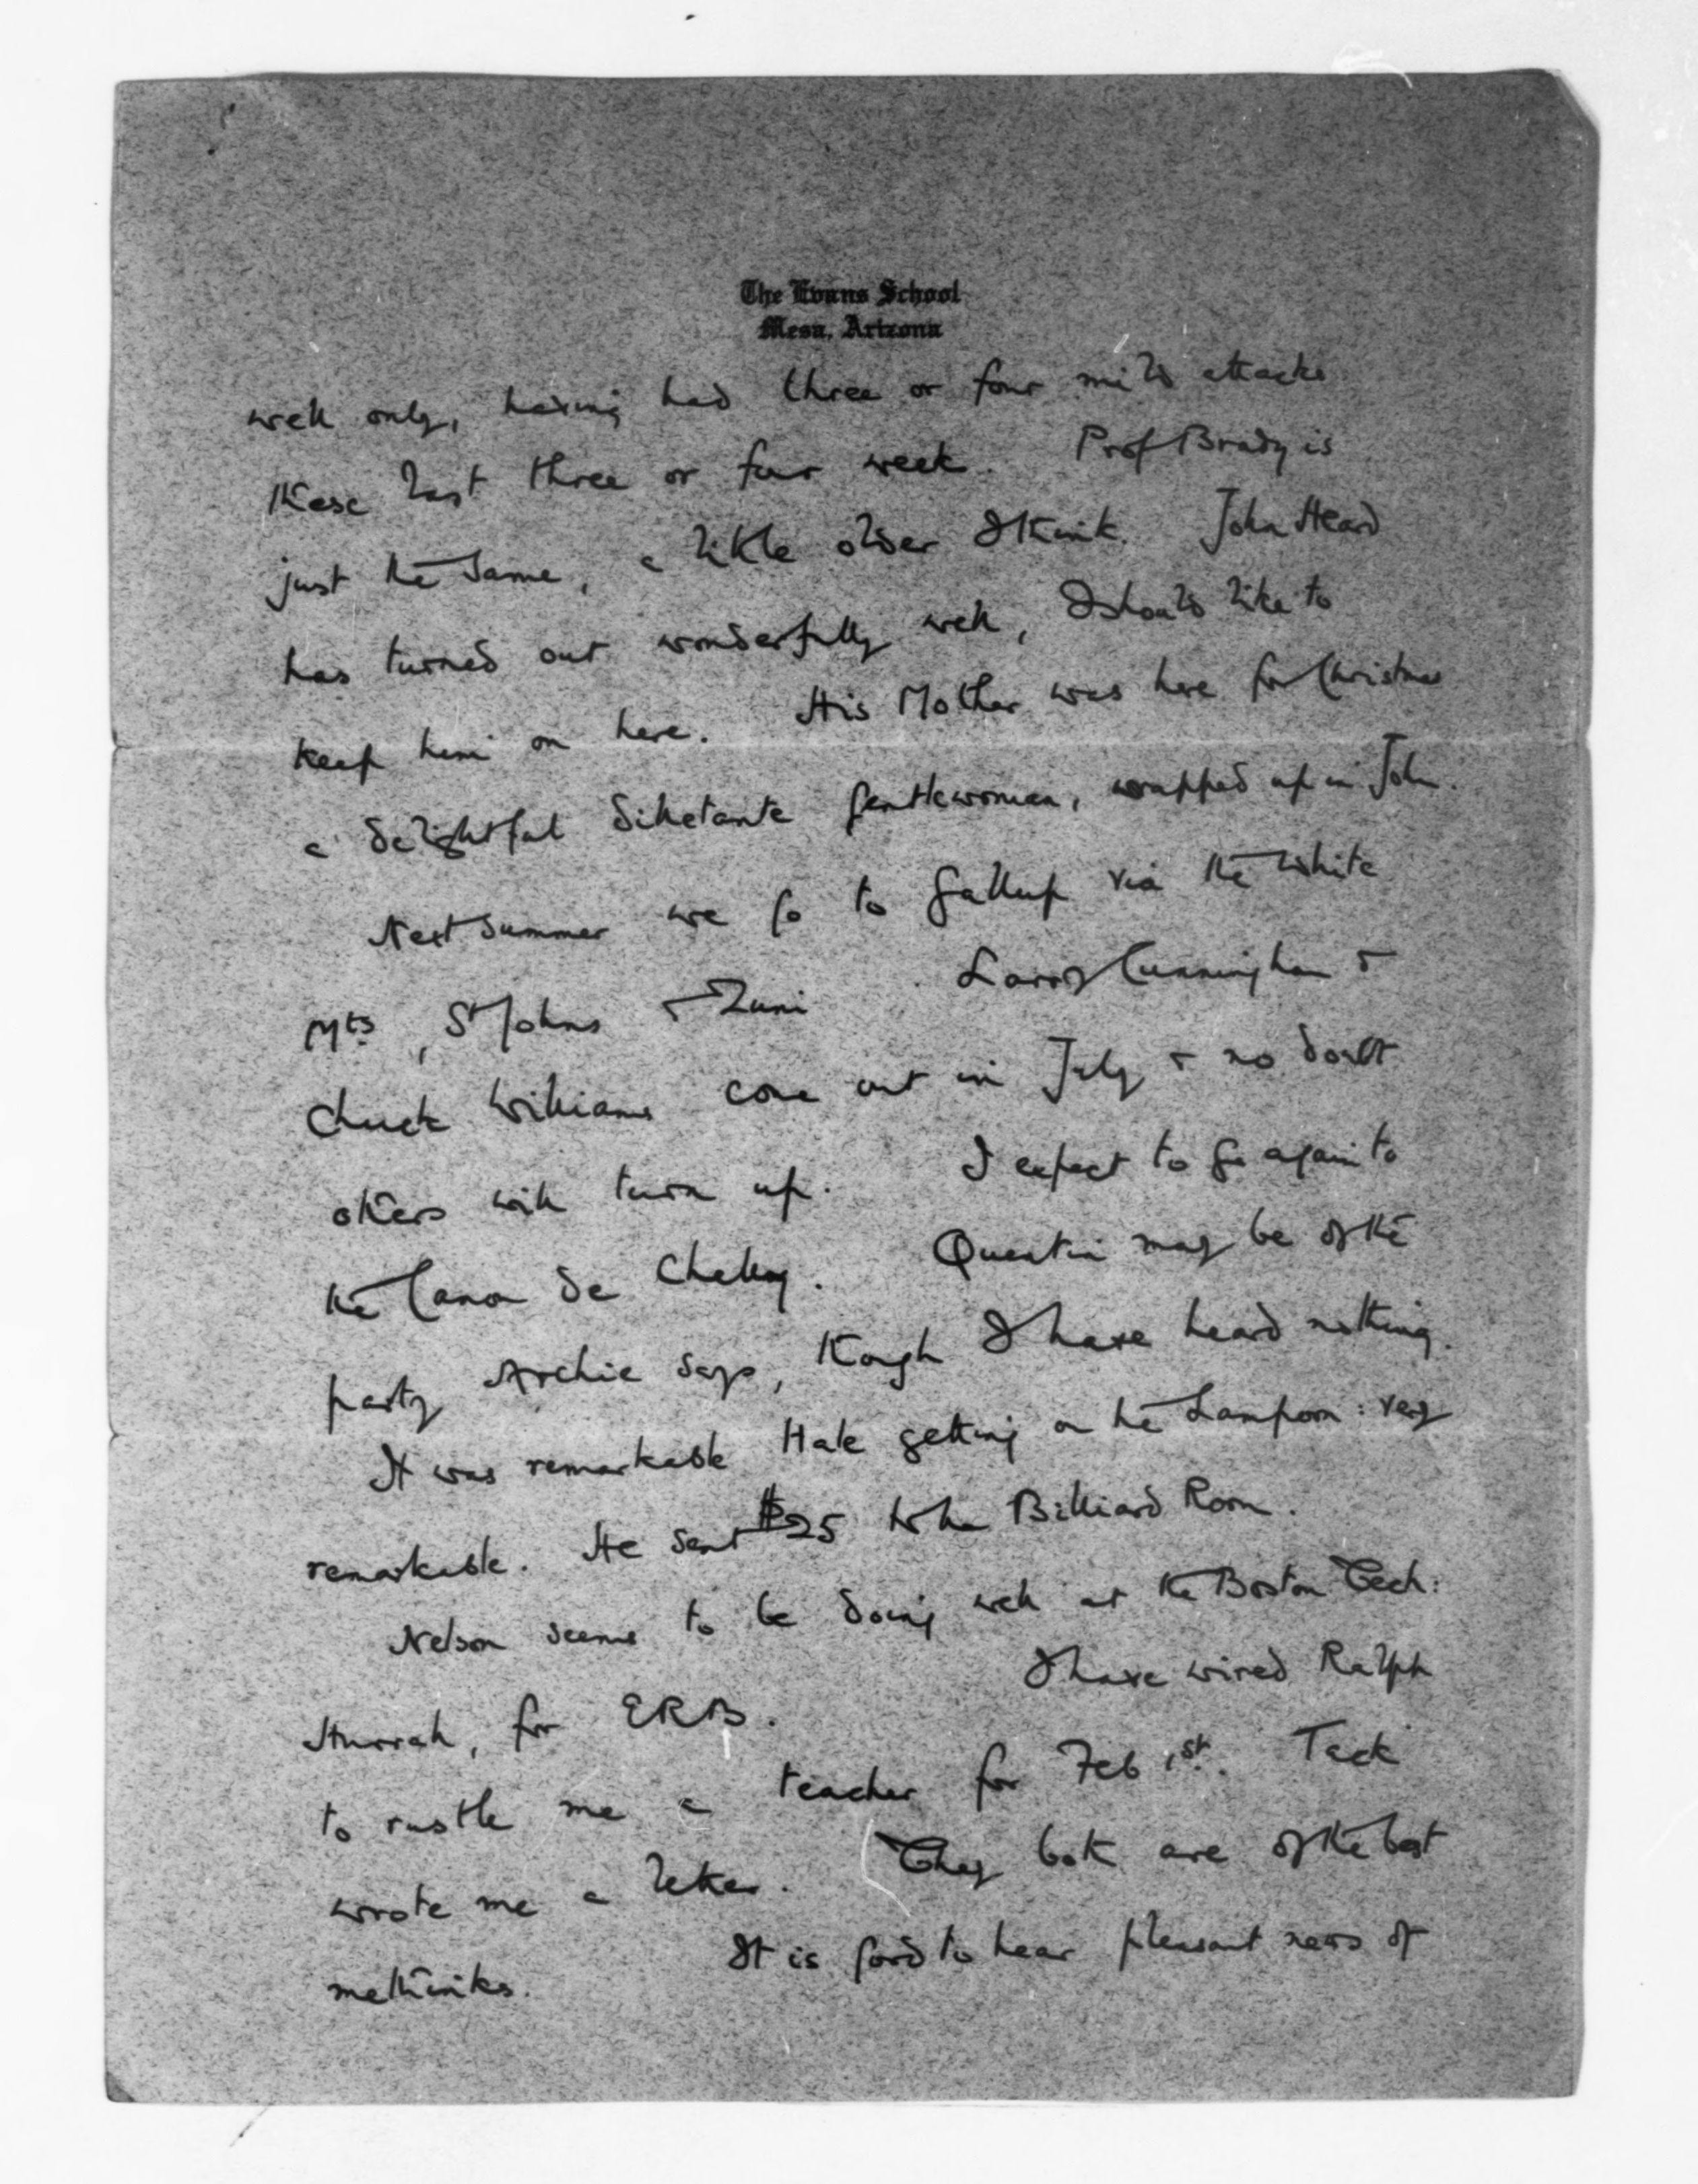 The Evans School
Mesa, Arizona
well only, having had three or four mild attacks
these last three or four week. Prof Brady is
just the same, a little older I think. John Heard
has turned out wonderfully well, I should like to
keep him on here. His Mother was here for Christmas
a delightful diletante gentlewoman, wrapped up in John.
Next summer we go to Gallup via the White
Mts, St Johns & Zuni. Larry Cunningham &
Chuck Williams come out in July & no doubt
others will turn up. I expect to go again to
the Canon de Chelley. Quentin may be of the
party Archie says, though I have heard nothing.
It was remarkable Hale getting on the Lampoon: very
remarkable. He sent $25 to the Billiard Room.
Nelson seems to be doing well at the Boston Tech:
Hurrah, for ERB. I have wired Ralph
to rustle me a teacher for Feb 1st. Tack
wrote me a letter. They both are of the best
methinks. It is good to hear pleasant news of